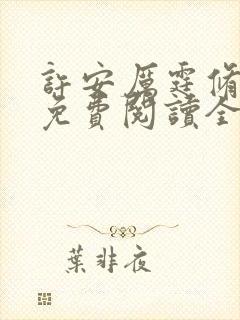 許安厲霆脩
免費閱讀全
葉非夜